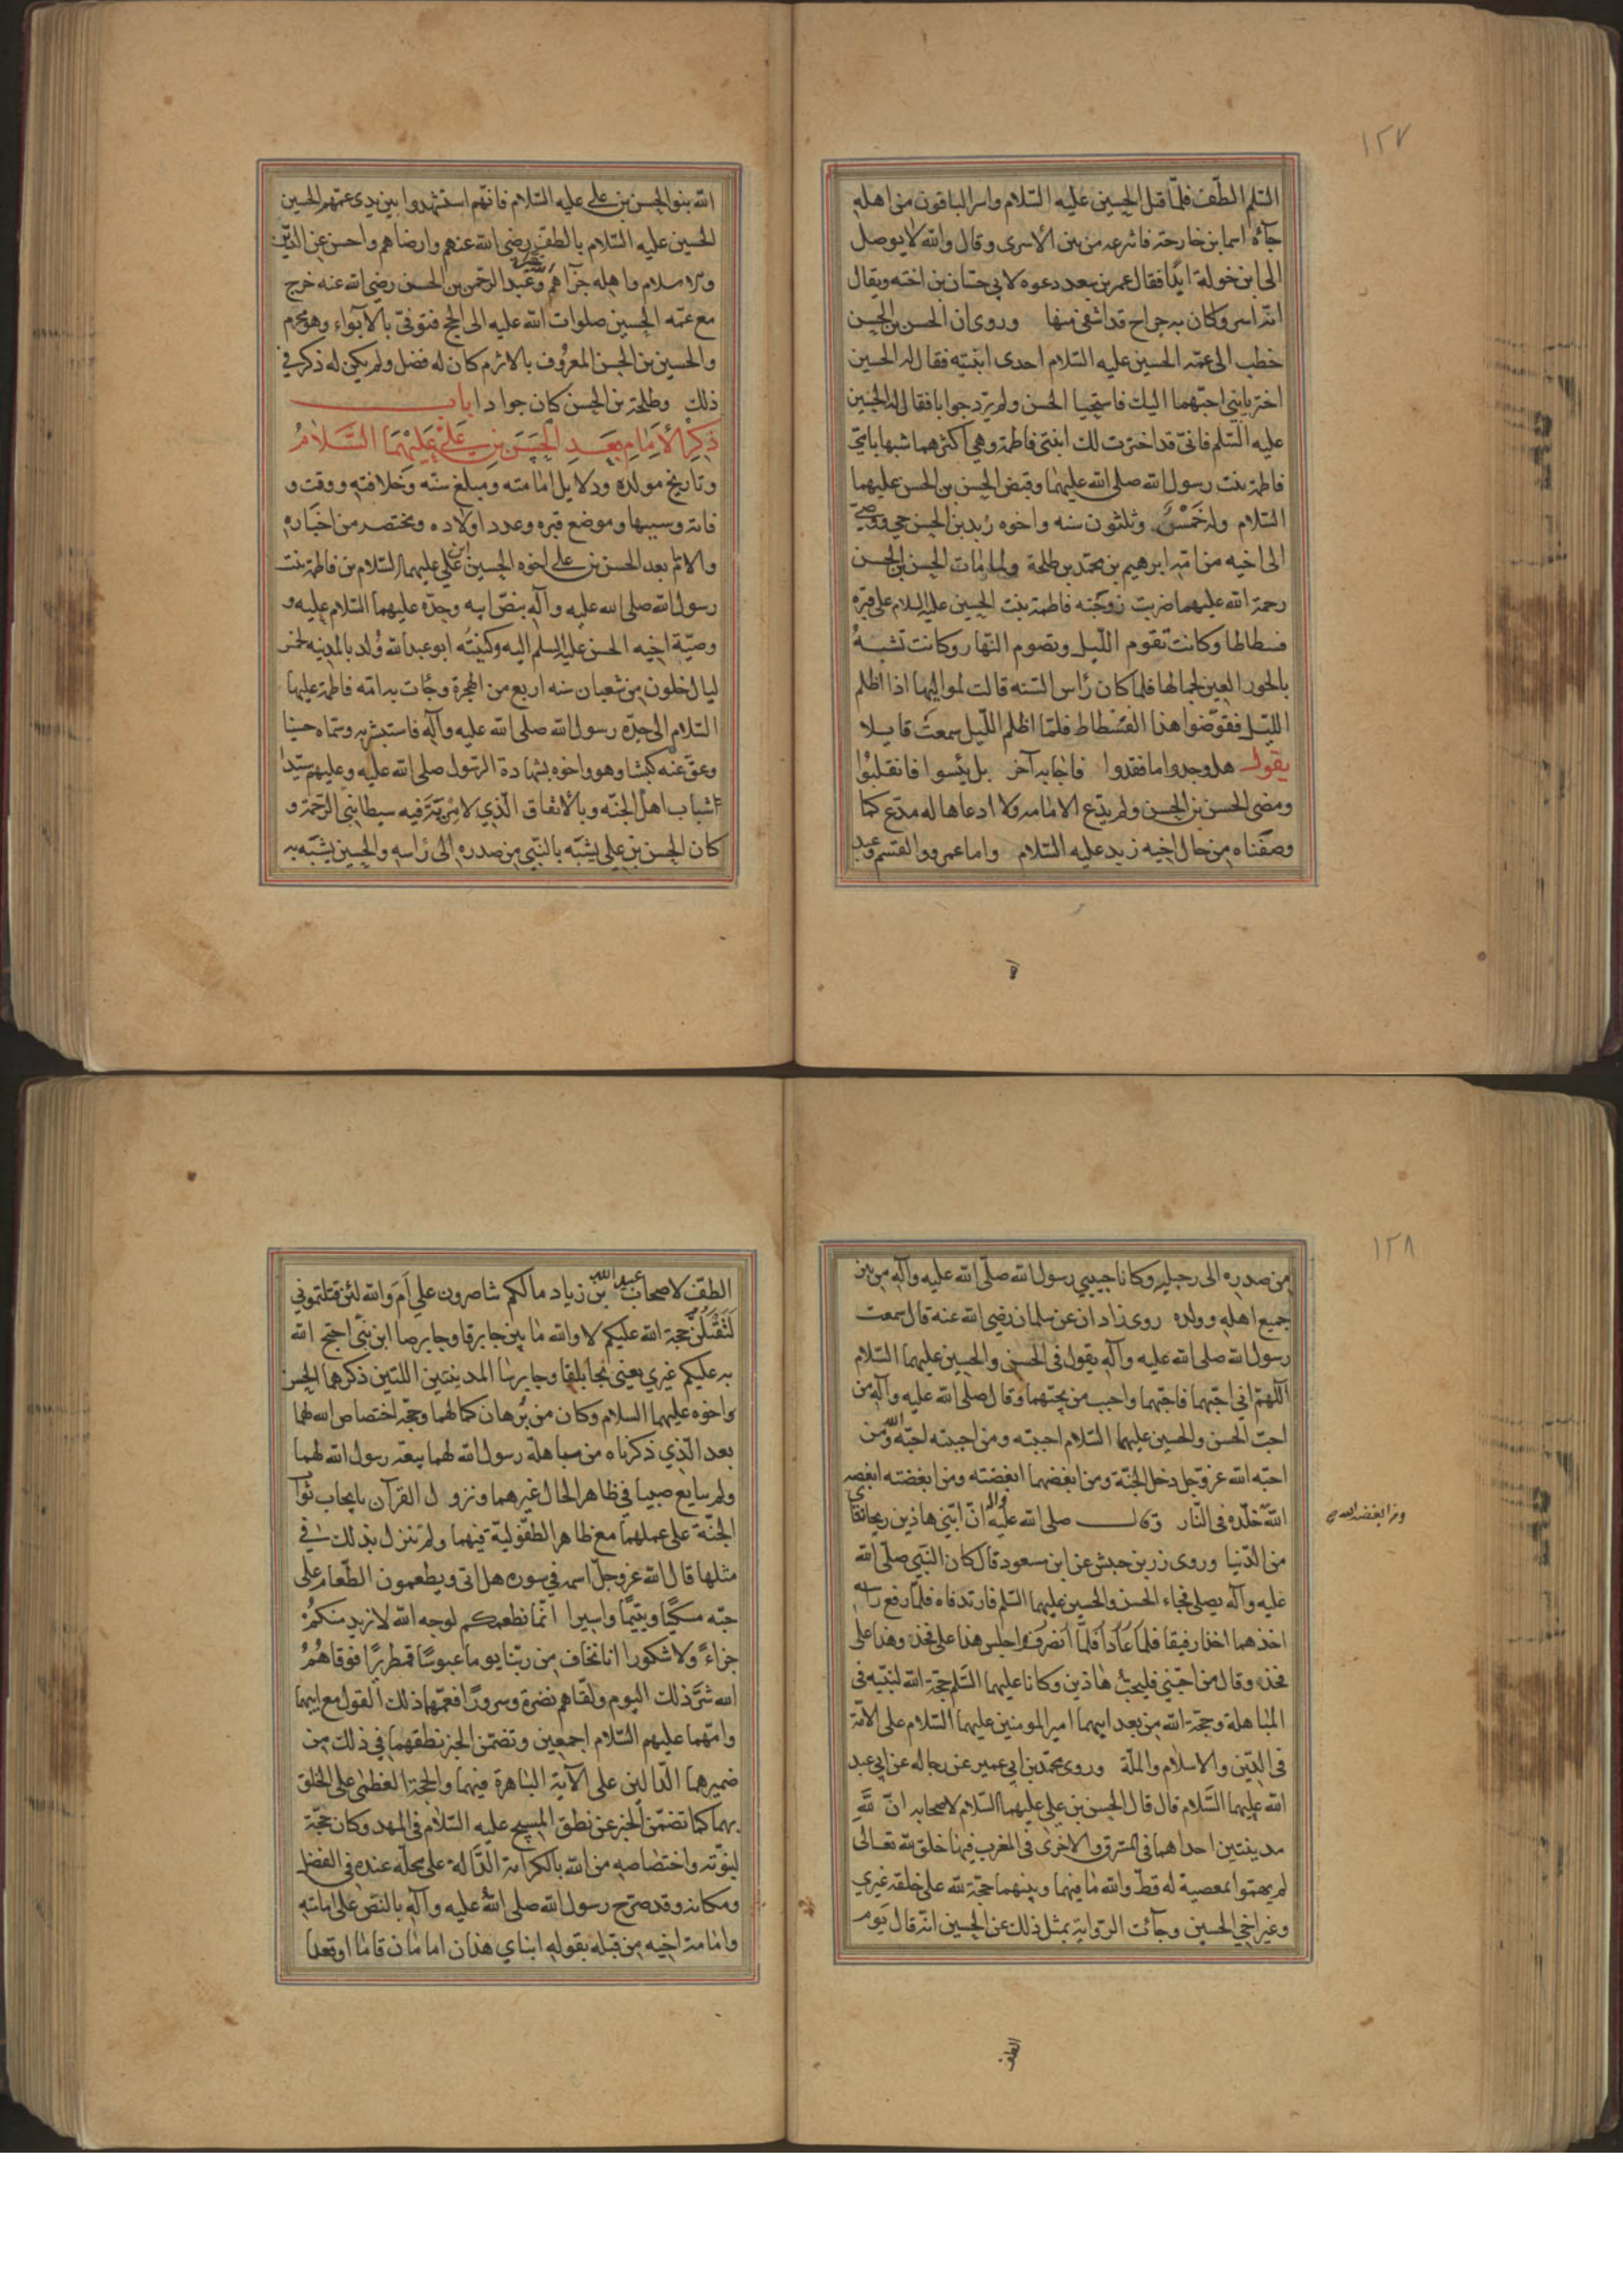 ١٢٧
السّلم الطّف فلمّا قتل الحسين عليه السّلام واسر الباقون من اهله
جآءه اسما بن خارجة فانتزعه من بين الأسرى وقال والله لا يوصل
الى ابن خولة ابدًا فقال عمر بن سعد دعوه لابي حسّان بن اخته ويقال
انه اسر وكان به جراح قد اشفى منها وروى ان الحسن بن الحسن
خطب الى عمّه الحسين عليه السّلام احدى ابنتيه فقال له الحسين
اختر يا بنيّ احبّهما اليك فاستحيا الحسن ولم يرد جوابا فقال له الحسين
عليه السّلم فانّي قد اخترت لك ابنتي فاطمة وهي اكثرهما شبها بامّي
فاطمة بنت رسول الله صلى الله عليهما وقبض الحسن بن الحسن عليهما
السّلام وله خَمْسٌ وثلثون سنه واخوه زيد بن الحسن حي ووصّي
الى اخيه من امّه ابرهيم بن محمّد بن طلحة ولما مات الحسن بن الحسن
رحمة الله عليهما ضربت زوجَته فاطمة بنت الحسين عليه السلام على قبره
فسطاطا وكانت تقوم اللّيل وتصوم النّهار وكانت تشبهُ
بالحور العين لجمالها فلما كان رأس السّنه قالت لمواليها اذا اظلم
اللّيل فقوّضوا هذا الفسْطاط فلمّا اظلم اللّيل سمعتْ قايلا
يقول هل وجدوا ما فقدوا فاجابه آخر بل يئسوا فانقلبُوا
ومضى الحسن بن الحسن ولم يدّع الامامه ولا ادعاها له مدّع كما
وصفناه من حال اخيه زيد عليه السّلام واما عمرو والقسم وعبد
الله بنو الحسن بن علي عليه السّلام فانّهم استشهدوا بين يدى عمّهم الحسين
الحسين عليه السّلام بالطفّ رضى الله عنهم وارضاهم واحسن عن الدّين
والاسلام واهله جزآهم وعبد الرّحمن بن الحسن رضي الله عنه خرج
مع عمّه الحسين صلوات الله عليه الى الحج فتوفّى بالأبواء وهو محرم
والحسين بن الحسن المعرُوف بالاثرم كان له فضل ولم يكن له ذكر في
ذلك وطلحة بن الحسن كان جوادا باب
ذكر الأمام بعد الحسن بن علي عليهما السّلامُ
وتاريخ مولده ودلايل امامته ومبلغ سنّه وخلافته ووقت و
فاته وسببها وموضع قبره وعدد اولاده ومختصر من اخباره
والامام بعد الحسن بن علي اخوه الحسين بن علي عليهما السّلام بن فاطمة بنت
رسول الله صلى الله عليه وآله بنصّ ابيه وجدّه عليهما السّلام عليه و
وصيّة اخيه الحسن عليه السلم اليه وكنيتُه ابو عبد الله وُلد بالمدينه لخمس
ليال خلون من شعبان سنه اربع من الهجرة وجآت به امّه فاطمة عليها
السّلام الى جدّه رسول الله صلى الله عليه وآله فاستبشر به وسمّاه حسينا
وعقّ عنه كبشا وهو واخوه بشهادة الرّسول صلى الله عليه وعليهم سيّدا
شباب اهل الجنّه وبالأتفاق الّذي لا مرية فيه سبطا نبي الرّحمة و
كان الحسن بن علي يشبّه بالنّبي من صدره الى رأسه والحسين يشبّه به
١٢٨
من صدره الى رجليه وكانا حبيبي رسول الله صلّى الله عليه وآله من بين
جميع اهله وولده روى زاذان عن سلمان رضي الله عنه قال سمعت
رسول الله صلى الله عليه وآله يقول في الحسن والحسين عليهما السّلام
اللهمّ اني احبّهما فاحبّهما واحبب من يحبّهما وقال صلى الله عليه وآله من
احبّ الحسن والحسين عليهما السّلام احببته ومن احببته احبّه الله ومن
احبّه الله عزوجّل دخل الجنّة ومن ابغضهما ابغضته ومن ابغضته ابغضه
الله خلّده في النّار وقال صلى الله عليه وآله انّ ابنَي هاذين ريحانتاى
ومن ابغضه الله
من الدّنيا وروى زر بن حبيش عن ابن مسعود قال كان النّبي صلّى الله
عليه وآله يصلى فجاء الحسن والحسين عليهما السّلم فارتدفاه فلما رفع راسه
اخذهما اخذا رفيقا فلما عادَ عادَا فلمّا انصرف اجلس هذا على فخذه وهذا على
فخذه وقال من احبّني فليحبّ هاذين وكانا عليهما السّلم حجّة الله لنبيّه في
المباهلة وحجّة الله من بعد ابيهما امير المومنين عليهما السّلام على الامّة
في الدّين والاسلام والملّة وروى محمّد بن ابي عمير عن رجاله عن ابي عبد
الله عليهما السَّلام قال قال الحسن بن علي عليهما السّلام لاصحابه انّ للهِ
مدينتين احداهما في المشرق والاخرى في المغرب فيهما خلق لله تعالى
لم يهمّوا بمعصية له قطّ والله ما فيهما وبينهما حجّة لله على خلقه غيري
وغير اخي الحسين وجآئت الرّواية بمثل ذلك عن الحسين انّه قال يوم
الطف
الطفّ لاصحاب عبيد الله بن زياد مالكم تناصرون علي اَمَ والله لئن قتلتموني
لَتَقْتُلُنّ حجة الله عليكم لا والله ما بين جابرقا وجابرصا ابن نبّي احتج الله
به عليكم غيري يعني بجابلقا وجابرسا المدينتين اللتين ذكرهما الحسن
واخوه عليهما السلام وكان من بُرهان كمالهما وحجّة اختصاص الله لهما
بعد الّذي ذكرناه من مباهلة رسول الله لهما بيعة رسول الله لهما
ولم يبايع صبيا في ظاهر الحال غيرهما ونزول القرآن بايجاب ثوآب
الجنّة على عملهما مع ظاهر الطفّوليّة فيهما ولم تنزل بذلك في
مثلهما قال الله عزوجلّ اسمه في سوره هل اتى ويطعمون الطّعام على
حبّه مسكينًا ويتيمًا واسيرا انّما نطعمكم لوجه الله لا نريد منكمُ
جزآءً ولا شكورا انا نخاف من ربّنا يوما عبوسًا قمطريرًا فوقاهُمُ
الله شرّ ذلك اليوم ولقّاهم نضرة وسرورًا فعمّهما ذلك القول مع ابيهما
وامّهما عليهم السّلام اجمعين وتضمّن الخبر نطقهما في ذلك من
ضميرهما الدّالين على الآية البَاهرة فيهما والحجّة العظمى على الخلق
بهما كما تضمّن الخبر عن نطق المسيح عليه السّلام في المهد وكان حجّة
لنبوّته واختصاصه من الله بالكرامة الدّالة على محلّه عنده في الفضل
ومكانه وقد صرّح رسول الله صلى اللهُ عليه وآله بالنّص على امامته
وامامة اخيه من قبله بقوله ابناي هذان امامان قاما او قعدا